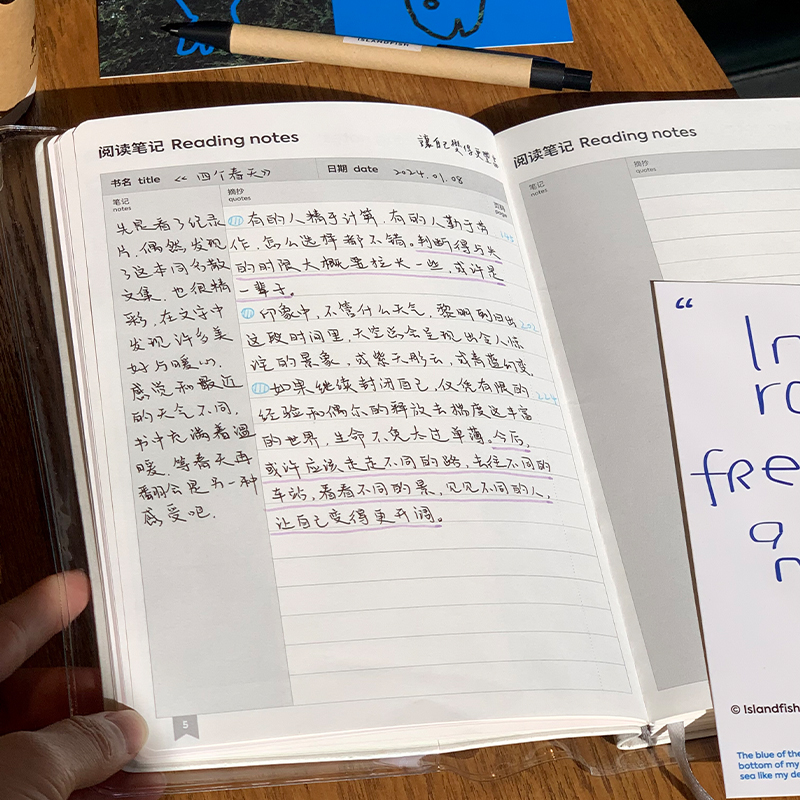 ISLANDFISH
阅读笔记 Reading notes
讓自己變得更豐富
书名 title 《四个春天》 日期 date 2024.01.08
笔记
notes
摘抄
quotes
页码
page
先是看了纪录
片,偶然发现
了这本同名散
文集,也很精
彩,在文字中
发现许多美
好与暖心.
感觉和最近
的天气不同,
书中充满着温
暖,等春天再
翻会是另一种
感受吧.
① 有的人精于计算,有的人勤于劳
作,怎么选择都不错。判断得与失
的时限大概要拉长一些,或许是
一辈子。
195
② 印象中,不管什么天气,黎明的日出
这段时间里,天空总会呈现出令人惊
诧的景象,或紫天彤云,或青蓝幻变
202
③ 如果继续封闭自己,仅凭有限的
经验和偶尔的释放去揣度这丰富
的世界,生命不免太过单薄。今后,
或许应该走走不同的路,去往不同的
车站,看看不同的景,见见不同的人,
让自己变得更开阔。
224
5
阅读笔记 Reading notes
笔记
notes
摘抄
quotes
“
In
fre
a
© Islandfish
The blue of the
bottom of my
sea like my de